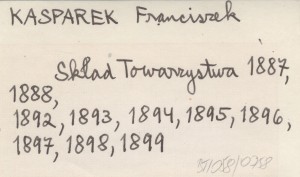 KASPAREK Franciszek
Skład Towarzystwa 1887,
1888,
1892, 1893, 1894, 1895, 1896,
1897, 1898, 1899